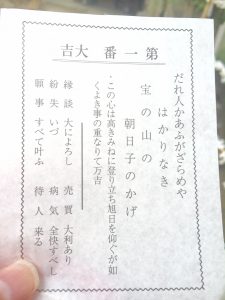 第一番 大吉
だれ人かあふがざらめや
はかりなき
宝の山の
朝日子のかげ
・この心は高きみねに登り立ち旭日を仰ぐが如
くよき事の重なりて万吉
縁談 大によろし 売買 大利あり
紛失 いづ 病気 全快すべし
願事 すべて叶ふ 待人 来る